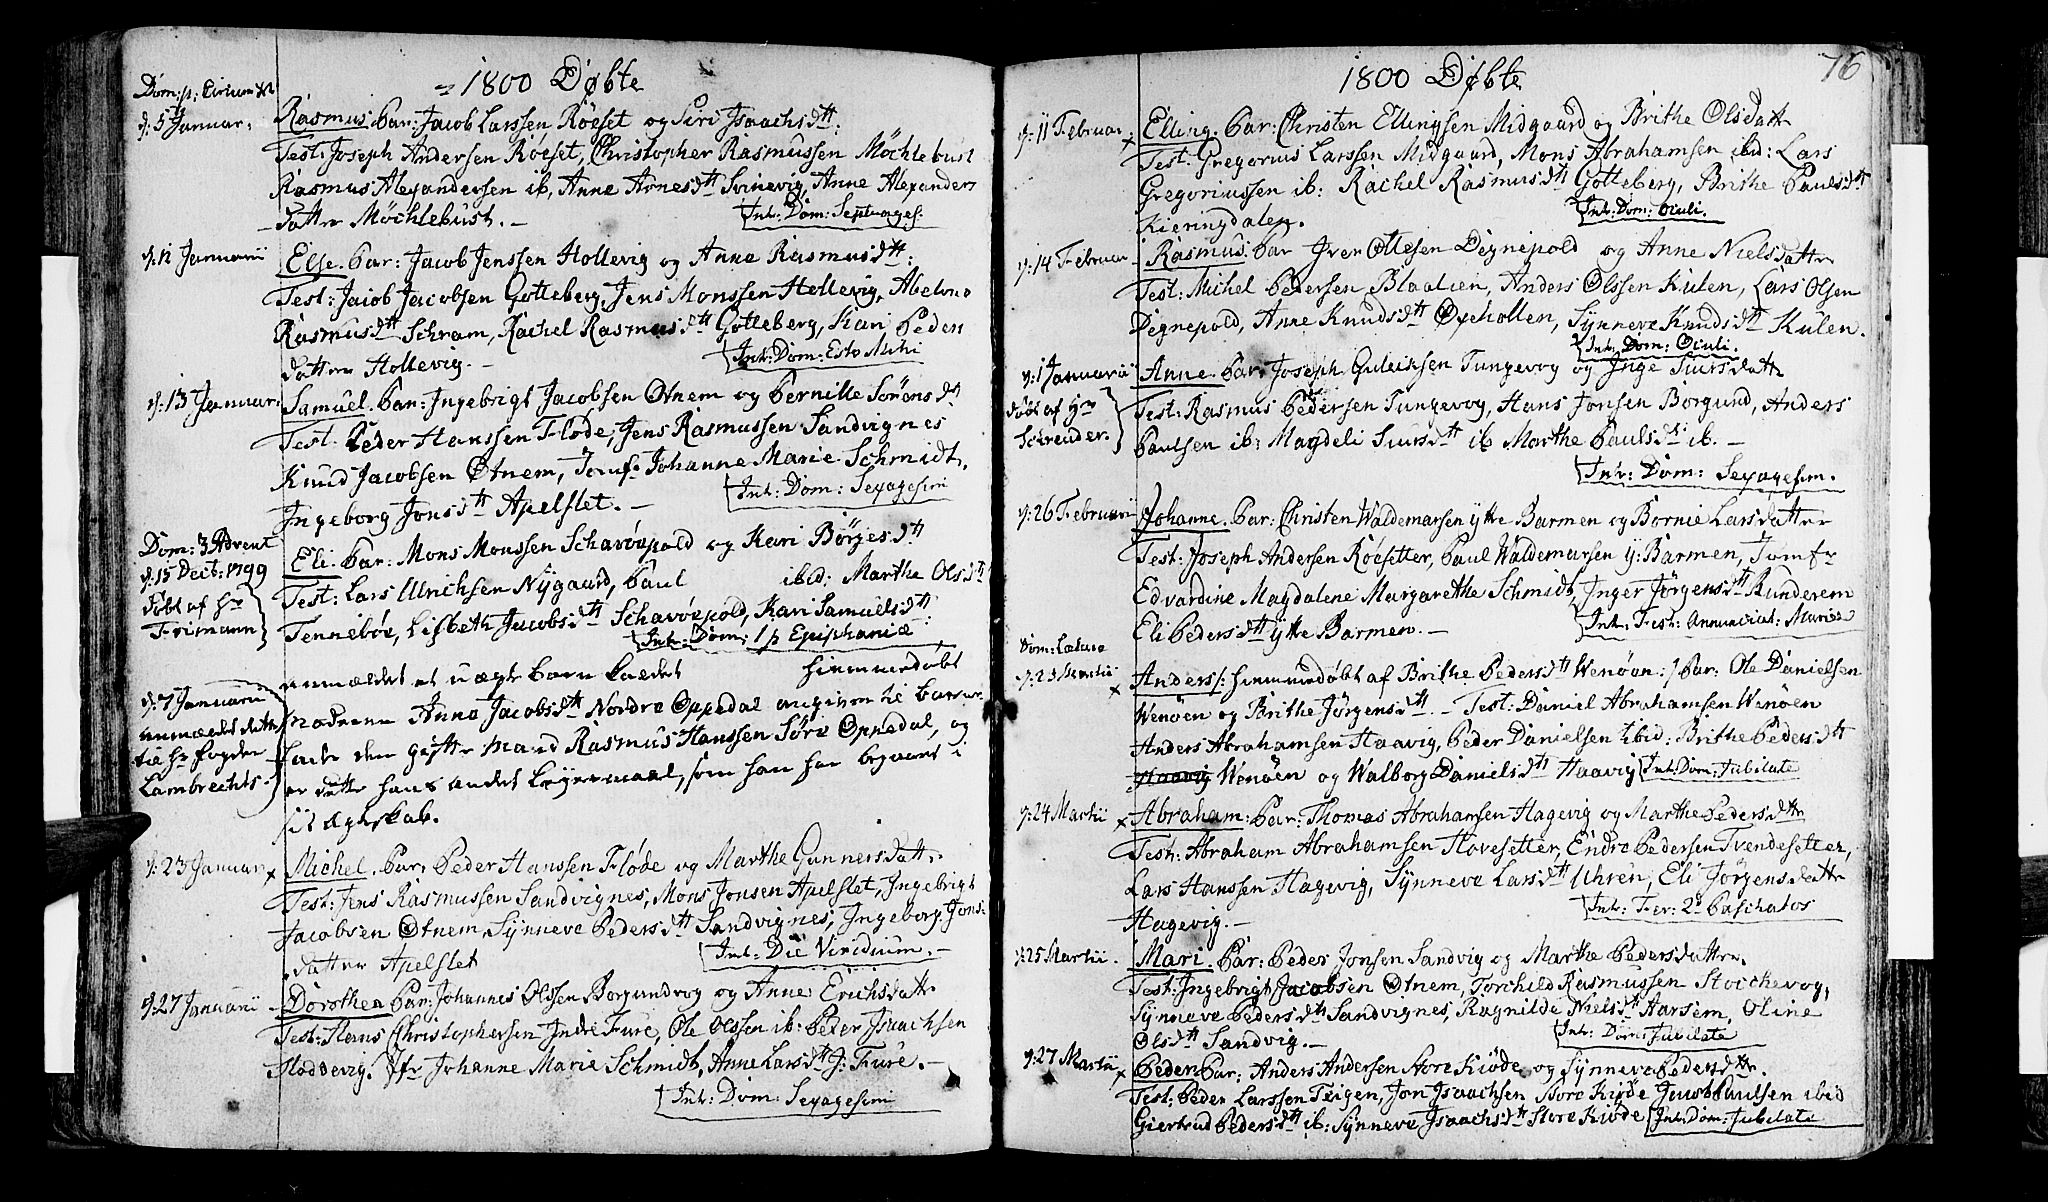 = 1800 Døbte
Dom: p: Circumcis
d: 5 Januar.
Rasmus. Par: Jacob Larssen Röeset og Siri Isaachsdtt:
Test: Joseph Andersen Röeset, Christopher Rasmussen Möchlebust
Rasmus Alexandersen ib, Anne Arnesdtt Svinevig, Anne Alexanders
datter Möchlebust. -
Int: Dom: Septuages:
d: 11 Januarii
Else. Par: Jacob Jenssen Hollevig og Anne Rasmusdtt:
Test: Jacob Jacobsen Gotteberg, Jens Monssen Hollevig, Abelone
Rasmusdtt Schram, Rachel Rasmusdtt Gotteberg, Kari Peders
datter Hollevig. -
Int: Dom: Esto Mihi
d: 13 Januar.
Samuel. Par: Ingebrigt Jacobsen Otnem og Pernille Sörensdtt
Test. Peder Hanssen Flöde, Jens Rasmussen Sandvignes
Knud Jacobsen Otnem, Jomfr Johanne Marie Schmidt,
Ingeborg Jonsdtt Apelset. -
Int: Dom: Sexagesim
Dom: 3 Advent
d: 15 Dect: 1799
döbt af Hr
Frimann
Eli. Par: Mons Monssen Schavöepold og Kari Börgesdtt
Test: Lars Ulrichsen Nygaard, Paul ibid: Marthe Olsdtt
Tenneböe, Lisbeth Jacobsdtt Schavöepold, Kari Samuelsdtt:
Int: Dom: 1 p Epiphaniæ
d: 7 Januarii
anmeldet dette
til Hr Fogden
Lambrechts.
anmeldet et uægte barn kaldet hiemmedöbt
Moderen Anne Jacobsdtt Nordre Oppedal angiven til barne
fader den gifte mand Rasmus Hanssen Söre Oppedal, og
er dette hans andet Leiermaal, som han har begaaet i
sit Egteskab.
d: 23 Januar x
Michel. Par: Peder Hanssen Flöde og Marthe Gunnersdatt.
Test: Jens Rasmussen Sandvignes, Mons Jonsen Apelset, Ingebrigt
Jacobsen Otnem, Synneve Pedersdtt Sandvignes, Ingeborg Jons:
datter Apelset
Int: Die Viridium. -
d: 27 Januarii
Dorothea Par: Johannes Olssen Borgundvog og Anne Erichsdatt.
Test: Hans Christophersen Indre Fure, Ole Olssen ib: Peder Isaachsen
Hoddevig. Jfr Johanne Marie Schmidt, Anne Larsdtt J: Fure. -
Int: Dom: Sexagesimi
1800 Døbte
76
d: 11 Februar x
Elling. Par: Christen Ellingsen Midgaard og Brithe Olsdatt
Test: Gregorius Larssen Midgaard, Mons Abrahamsen ibid: Lars
Gregoriussen ib: Rachel Rasmusdtt Gotteberg, Brithe Paulsdtt
Kieringdalen.
Int: Dom: Oculi.
d: 14 Februar
Rasmus. Par Iver Ottesen Degnepold og Anne Nielsdatter
Test: Michel Pedersen Blaalien, Anders Olssen Kulen, Lars Olsen
Degnepold, Anne Knudsdtt Oxeholten, Synneve Knudsdtt Kulen.
Int: Dom: Oculi.
d: 1 Januarii
döbt af Hr
Schreuder.
Anne. Par: Joseph Guleichsen Tungevog og Inge Siursdatt
Test: Rasmus Pedersen Tungevog, Hans Jonsen Borgund, Anders
Paulsen ib: Magdeli Siursdtt ib Marthe Paulsdtt ib. -
Int: Dom: Sexagesim.
d: 26 Februarii
Johanne. Par: Christen Waldemarsen ytre Barmen og Bornie Larsdatter
Test: Joseph Andersen Röesetter, Paul Waldemarsen y: Barmen, Jomfr
Edvardine Magdalene Margarethe Schmidt, Inger Jörgensdtt Runderem
Eli Pedersdtt ytre Barmen. -
Int: Fest: Annunciat: Mariæ
Dom: Lætare
d: 23 Martii x
Anders /: hiemmedöbt af Brithe Pedersdtt Wenöen :/ Par: Ole Danielsen
Wenöen og Brithe Jörgensdtt. - Test: Daniel Abrahamsen Wenöen
Anders Abrahamsen Haavig, Peder Danielsen ibid: Brithe Pedersdtt
Haavig Wenöen og Walborg Danielsdtt Haavig
Int: Dom: Jubilate
d: 24 Martii x
Abraham: Par: Thomas Abrahamsen Hagevig og Marthe Pedersdttr
Test: Abraham Abrahamsen Hovesetter, Endre Pedersen Tvendesetter,
Lars Hanssen Hagevig, Synneve Larsdtt Uhren, Eli Jörgensdatte
Hagevig. -
Int: Fer: 2a Paschatos
d: 25 Martii.
Mari. Par: Peder Jonsen Sandvig og Marthe Pedersdatter.
Test: Ingebrigt Jacobsen Otnem, Torchild Rasmussen Stochevog,
Synneve Pedersdtt Sandvignes, Ragnilde Nielsdtt Aarsem, Oline
Olsdtt Sandvig. -
Int: Dom: Jubilate
d: 27 Martii x
Peder. Par: Anders Andersen Store Kiöde og Synneve Pedersdttr.
Test: Peder Larssen Teigen, Jon Isaachsen Store Kiöde Jacob Paulsen ibid
Giertrud Pedersdtt ib: Synneve Isaachsdtt Store Kiöde
Int: Dom: Jubilate